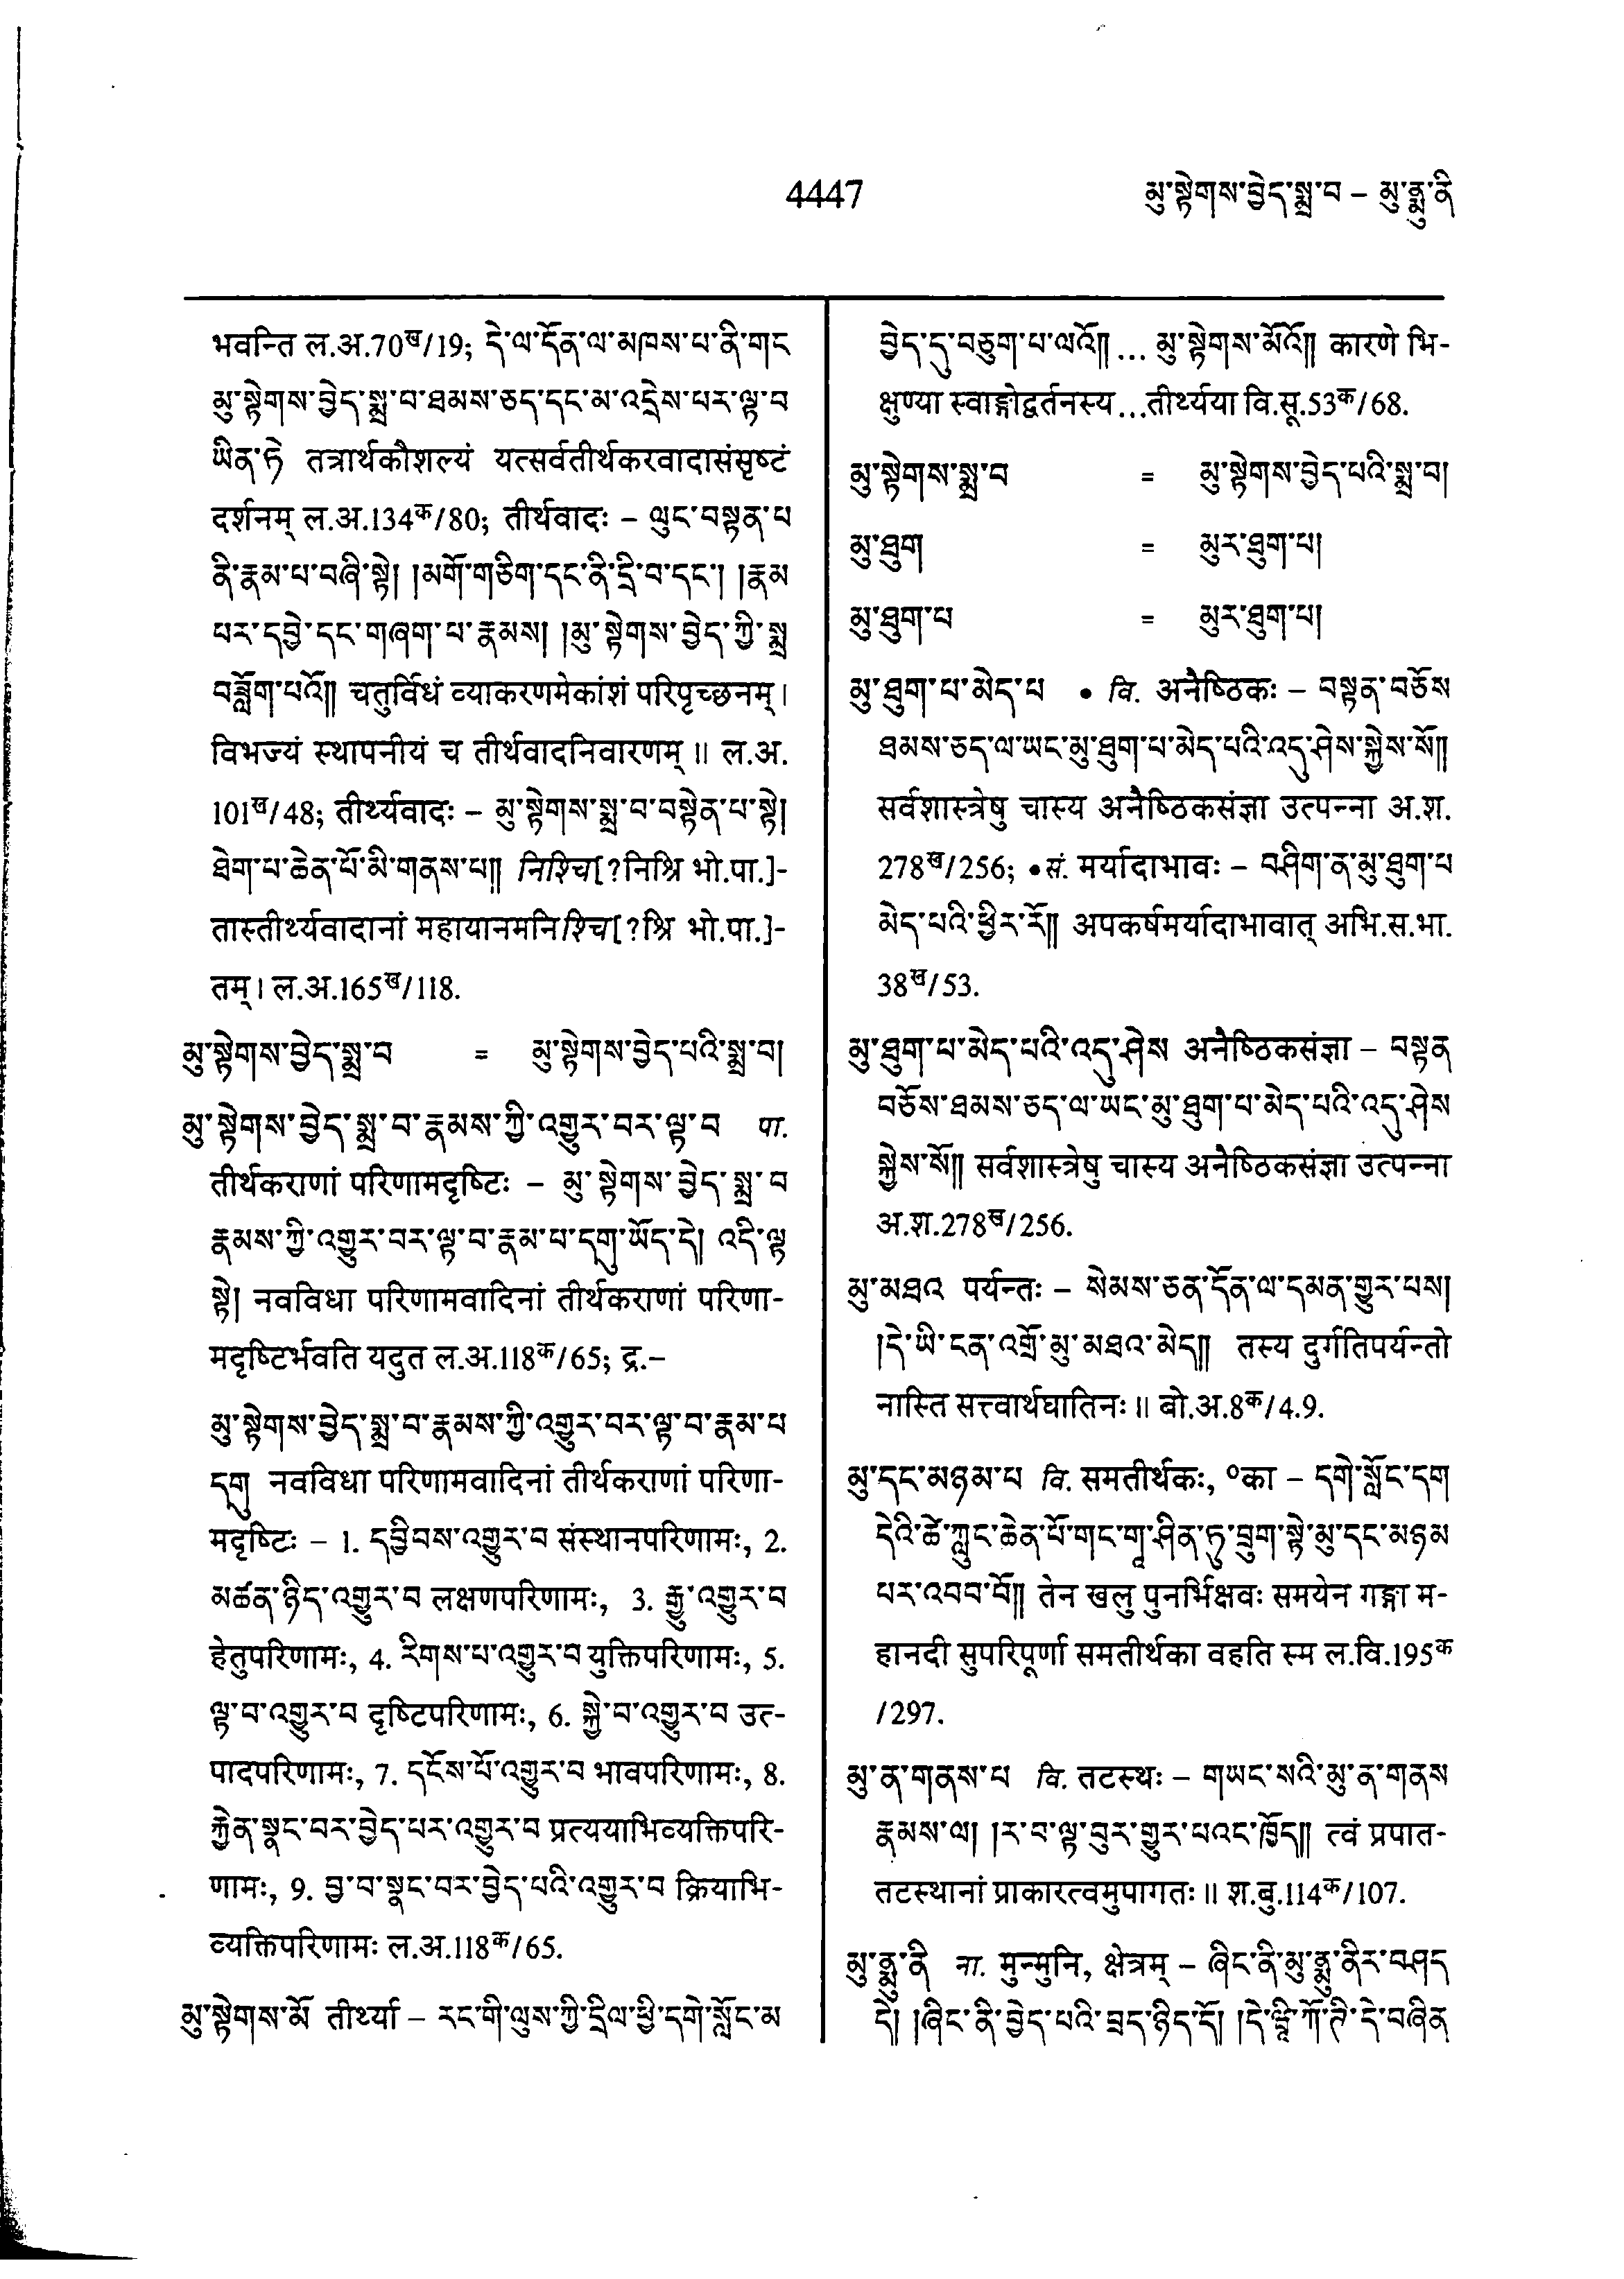 4447
མུ་སྟེགས་བྱེད་སྨྲ་བ – མུ་ནྨུ་ནི
भवन्ति ल.अ.70ख/19; དེ་ལ་དོན་ལ་མཁས་པ་ནི་གང
མུ་སྟེགས་བྱེད་སྨྲ་བ་ཐམས་ཅད་དང་མ་འདྲེས་པར་ལྟ་བ
ཡིན་ཏེ तत्रार्थकौशल्यं यत्सर्वतीर्थकरवादासंसृष्टं
दर्शनम् ल.अ.134क/80; तीर्थवादः – ལུང་བསྟན་པ
ནི་རྣམ་པ་བཞི་སྟེ། །མགོ་གཅིག་དང་ནི་དྲི་བ་དང་། །རྣམ
པར་དབྱེ་དང་གཞག་པ་རྣམས། །མུ་སྟེགས་བྱེད་ཀྱི་སྨྲ
བཟློག་པའོ།། चतुर्विधं व्याकरणमेकांशं परिपृच्छनम्।
विभज्यं स्थापनीयं च तीर्थवादनिवारणम्॥ ल.अ.
101ख/48; तीर्थ्यवादः – མུ་སྟེགས་སྨྲ་བ་བསྟེན་པ་སྟེ།
ཐེག་པ་ཆེན་པོ་མི་གནས་པ།། निश्चि[?निश्रि भो.पा.]-
तास्तीर्थ्यवादानां महायानमनिश्चि[?श्रि भो.पा.]-
तम्। ल.अ.165ख/118.
མུ་སྟེགས་བྱེད་སྨྲ་བ = མུ་སྟེགས་བྱེད་པའི་སྨྲ་བ།
མུ་སྟེགས་བྱེད་སྨྲ་བ་རྣམས་ཀྱི་འགྱུར་བར་ལྟ་བ पा.
तीर्थकराणां परिणामदृष्टिः – མུ་སྟེགས་བྱེད་སྨྲ་བ
རྣམས་ཀྱི་འགྱུར་བར་ལྟ་བ་རྣམ་པ་དགུ་ཡོད་དེ། འདི་ལྟ
སྟེ། नवविधा परिणामवादिनां तीर्थकराणां परिणा-
मदृष्टिर्भवति यदुत ल.अ.118क/65; द्र.–
མུ་སྟེགས་བྱེད་སྨྲ་བ་རྣམས་ཀྱི་འགྱུར་བར་ལྟ་བ་རྣམ་པ
དགུ नवविधा परिणामवादिनां तीर्थकराणां परिणा-
मदृष्टिः – 1. དབྱིབས་འགྱུར་བ संस्थानपरिणामः, 2.
མཚན་ཉིད་འགྱུར་བ लक्षणपरिणामः, 3. རྒྱུ་འགྱུར་བ
हेतुपरिणामः, 4. རིགས་པ་འགྱུར་བ युक्तिपरिणामः, 5.
ལྟ་བ་འགྱུར་བ दृष्टिपरिणामः, 6. སྐྱེ་བ་འགྱུར་བ उत्-
पादपरिणामः, 7. དངོས་པོ་འགྱུར་བ भावपरिणामः, 8.
རྐྱེན་སྣང་བར་བྱེད་པར་འགྱུར་བ प्रत्ययाभिव्यक्तिपरि-
णामः, 9. བྱ་བ་སྣང་བར་བྱེད་པའི་འགྱུར་བ क्रियाभि-
व्यक्तिपरिणामः ल.अ.118क/65.
མུ་སྟེགས་མོ तीर्थ्या – རང་གི་ལུས་ཀྱི་དྲིལ་ཕྱི་དགེ་སློང་མ
བྱེད་དུ་བཅུག་པ་ལའོ།། ... མུ་སྟེགས་མོའོ།། कारणे भि-
क्षुण्या स्वाङ्गोद्वर्तनस्य...तीर्थ्यया वि.सू.53क/68.
མུ་སྟེགས་སྨྲ་བ = མུ་སྟེགས་བྱེད་པའི་སྨྲ་བ།
མུ་ཐུག = མུར་ཐུག་པ།
མུ་ཐུག་པ = མུར་ཐུག་པ།
མུ་ཐུག་པ་མེད་པ • वि. अनैष्ठिकः – བསྟན་བཅོས
ཐམས་ཅད་ལ་ཡང་མུ་ཐུག་པ་མེད་པའི་འདུ་ཤེས་སྐྱེས་སོ།།
सर्वशास्त्रेषु चास्य अनैष्ठिकसंज्ञा उत्पन्ना अ.श.
278ख/256; • सं. मर्यादाभावः – བཤིག་ན་མུ་ཐུག་པ
མེད་པའི་ཕྱིར་རོ།། अपकर्षमर्यादाभावात् अभि.स.भा.
38ख/53.
མུ་ཐུག་པ་མེད་པའི་འདུ་ཤེས अनैष्ठिकसंज्ञा – བསྟན
བཅོས་ཐམས་ཅད་ལ་ཡང་མུ་ཐུག་པ་མེད་པའི་འདུ་ཤེས
སྐྱེས་སོ།། सर्वशास्त्रेषु चास्य अनैष्ठिकसंज्ञा उत्पन्ना
अ.श.278ख/256.
མུ་མཐའ पर्यन्तः – སེམས་ཅན་དོན་ལ་དམན་གྱུར་པས།
།དེ་ཡི་ངན་འགྲོ་མུ་མཐའ་མེད།། तस्य दुर्गतिपर्यन्तो
नास्ति सत्त्वार्थघातिनः॥ बो.अ.8क/4.9.
མུ་དང་མཉམ་པ वि. समतीर्थकः, ०का – དགེ་སློང་དག
དེའི་ཚེ་ཀླུང་ཆེན་པོ་གང་གཱ་ཤིན་ཏུ་བྲུག་སྟེ་མུ་དང་མཉམ
པར་འབབ་བོ།། तेन खलु पुनर्भिक्षवः समयेन गङ्गा म-
हानदी सुपरिपूर्णा समतीर्थका वहति स्म ल.वि.195क
/297.
མུ་ན་གནས་པ वि. तटस्थः – གཡང་སའི་མུ་ན་གནས
རྣམས་ལ། །ར་བ་ལྟ་བུར་གྱུར་པའང་ཁྱོད།། त्वं प्रपात-
तटस्थानां प्राकारत्वमुपागतः॥ श.बु.114क/107.
མུ་ནྨུ་ནི ना. मुन्मुनि, क्षेत्रम् – ཞིང་ནི་མུ་ནྨུ་ནིར་བཤད
དེ། །ཞིང་ནི་བྱེད་པའི་བྲད་ཉིད་དོ། །དེ་ཝཱི་ཀོ་ཊི་དེ་བཞིན